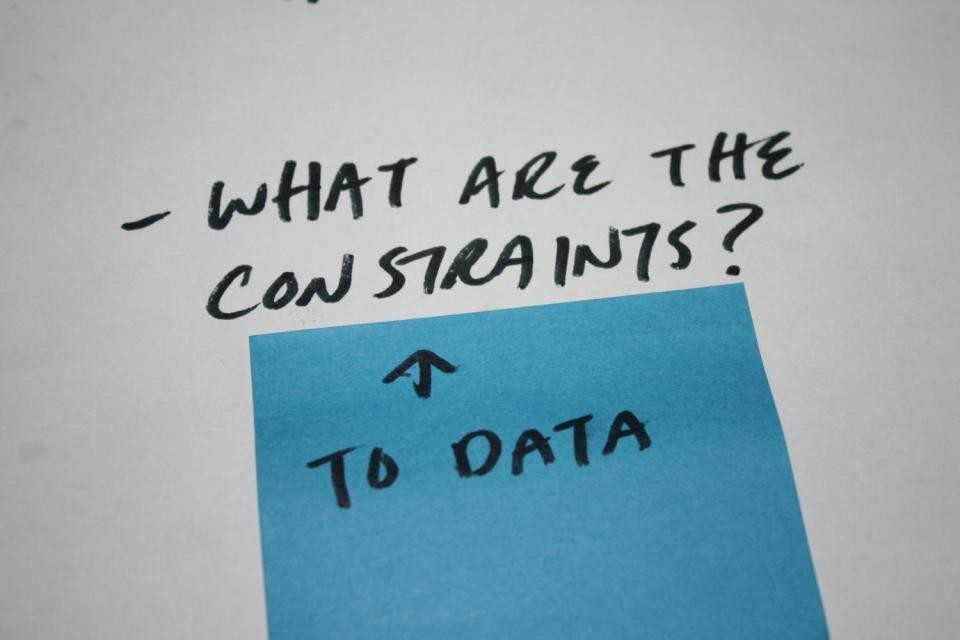 - WHAT ARE THE
CONSTRAINTS?
↑
TO DATA